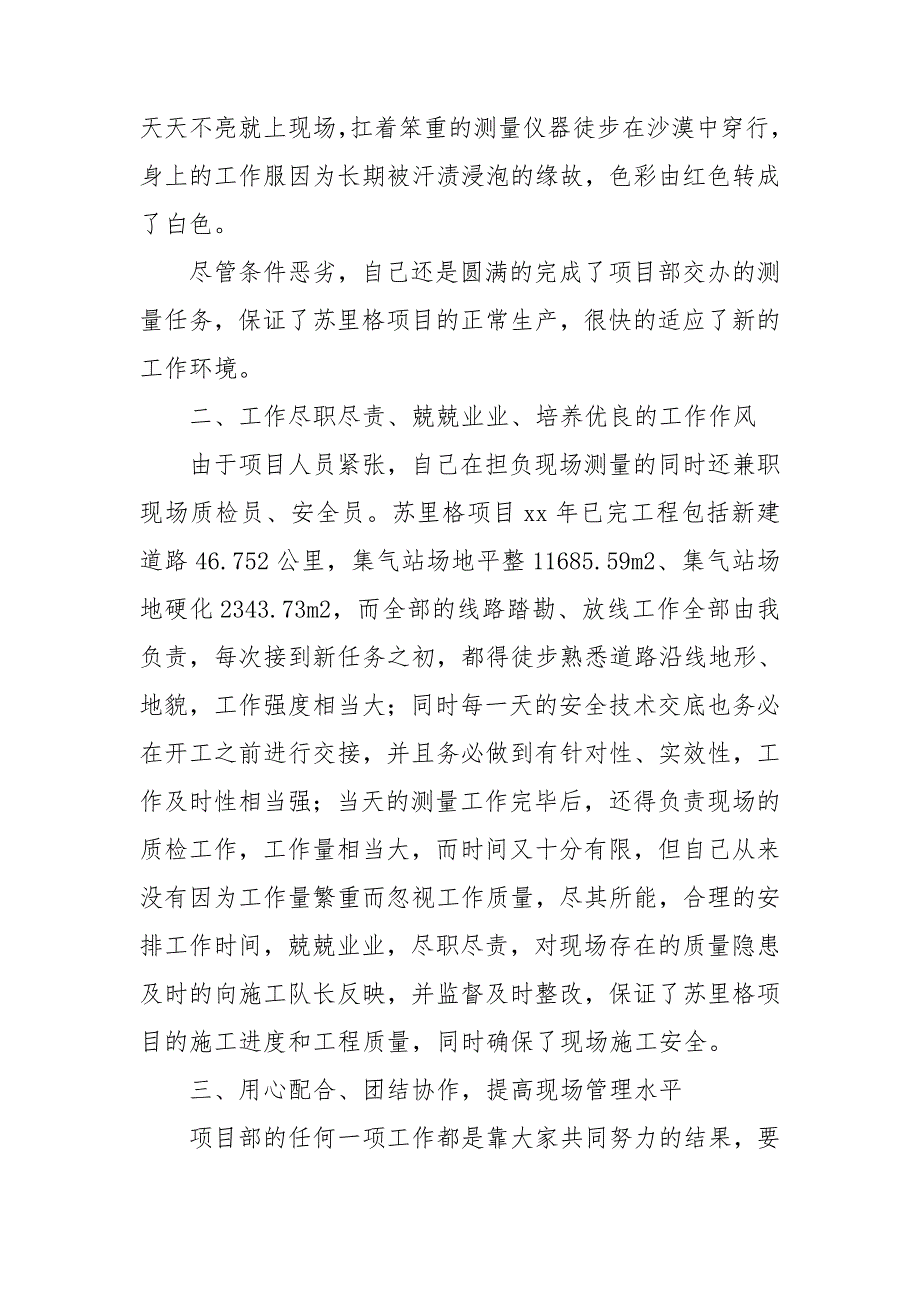 天天不亮就上现场，扛着笨重的测量仪器徒步在沙漠中穿行，
身上的工作服因为长期被汗渍浸泡的缘故，色彩由红色转成
了白色。
尽管条件恶劣，自己还是圆满的完成了项目部交办的测
量任务，保证了苏里格项目的正常生产，很快的适应了新的
工作环境。
二、工作尽职尽责、兢兢业业、培养优良的工作作风
由于项目人员紧张，自己在担负现场测量的同时还兼职
现场质检员、安全员。苏里格项目 xx 年已完工程包括新建
道路 46.752 公里，集气站场地平整 11685.59m2、集气站场
地硬化 2343.73m2，而全部的线路踏勘、放线工作全部由我
负责，每次接到新任务之初，都得徒步熟悉道路沿线地形、
地貌，工作强度相当大；同时每一天的安全技术交底也务必
在开工之前进行交接，并且务必做到有针对性、实效性，工
作及时性相当强；当天的测量工作完毕后，还得负责现场的
质检工作，工作量相当大，而时间又十分有限，但自己从来
没有因为工作量繁重而忽视工作质量，尽其所能，合理的安
排工作时间，兢兢业业，尽职尽责，对现场存在的质量隐患
及时的向施工队长反映，并监督及时整改，保证了苏里格项
目的施工进度和工程质量，同时确保了现场施工安全。
三、用心配合、团结协作，提高现场管理水平
项目部的任何一项工作都是靠大家共同努力的结果，要